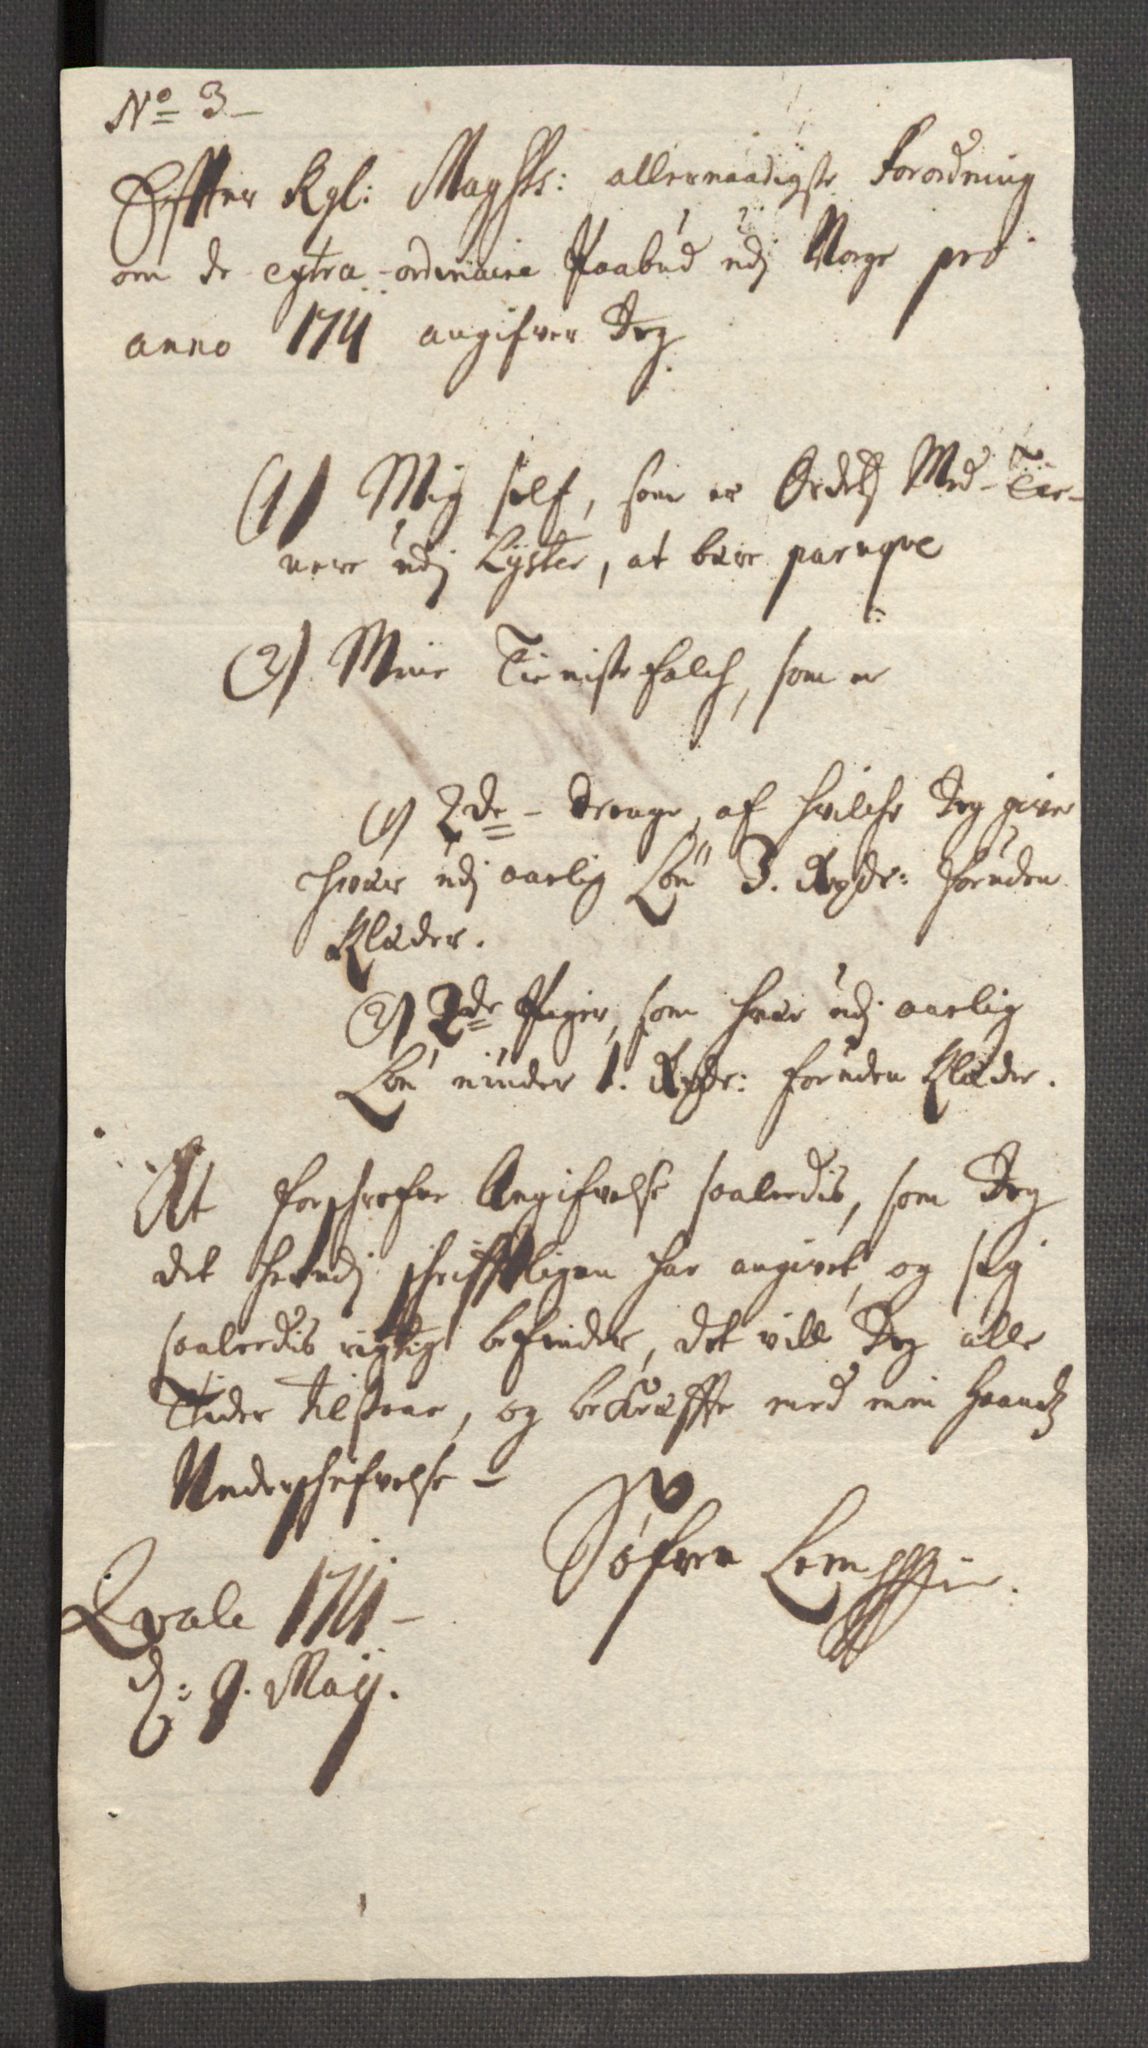 No 3
Effter Kgl: Maÿsts: allernaadigste Forordning
om de extra-ordinaire Paabud udj Norge pro
anno 1711 angifver Jeg
(1) Mig self, som er Ordetz Med-Tie-
nere udj Lyster, at bære
(2) Mine Tienistefolch, som er
1) 2de Drenge, af hvilche Jeg giver
hver udj aarlig Løn 3. Rixdr: foruden
Klæder.
2) 2de Piger, som hver udj aarlig
Løn niuder 1. Rixdr: foruden Klæder.
At forschrefne Angifvelse saaledis, som Jeg
det herudj schrifftligen har angivet, og sig
saaledis rigtig befinder, det vill Jeg alle
Tider tilstaae, og bekræffte med min Haandtz
Underschrifvelse
Søfren
Qvale 1711
d: 9. Maij.